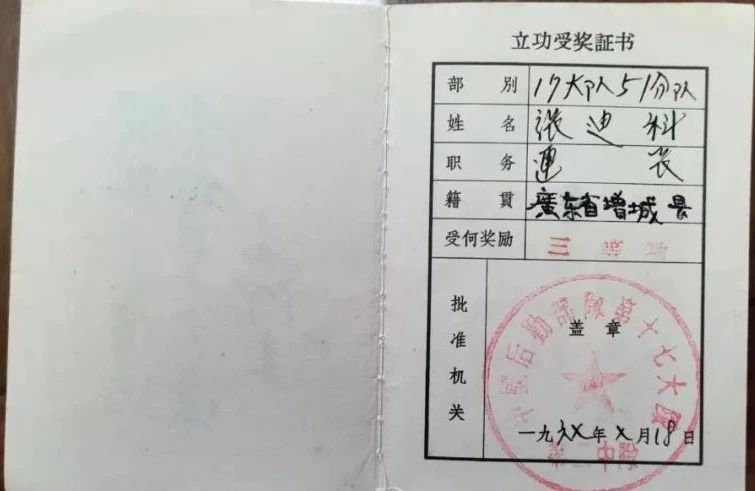 立功受奖証书
部别 17大队51分队
姓名 张迪科
职务 連长
籍貫 廣东省增城县
受何奖励 三等功
批准机关
中国后勤部队第十七大队
盖章
一九六X年X月18日